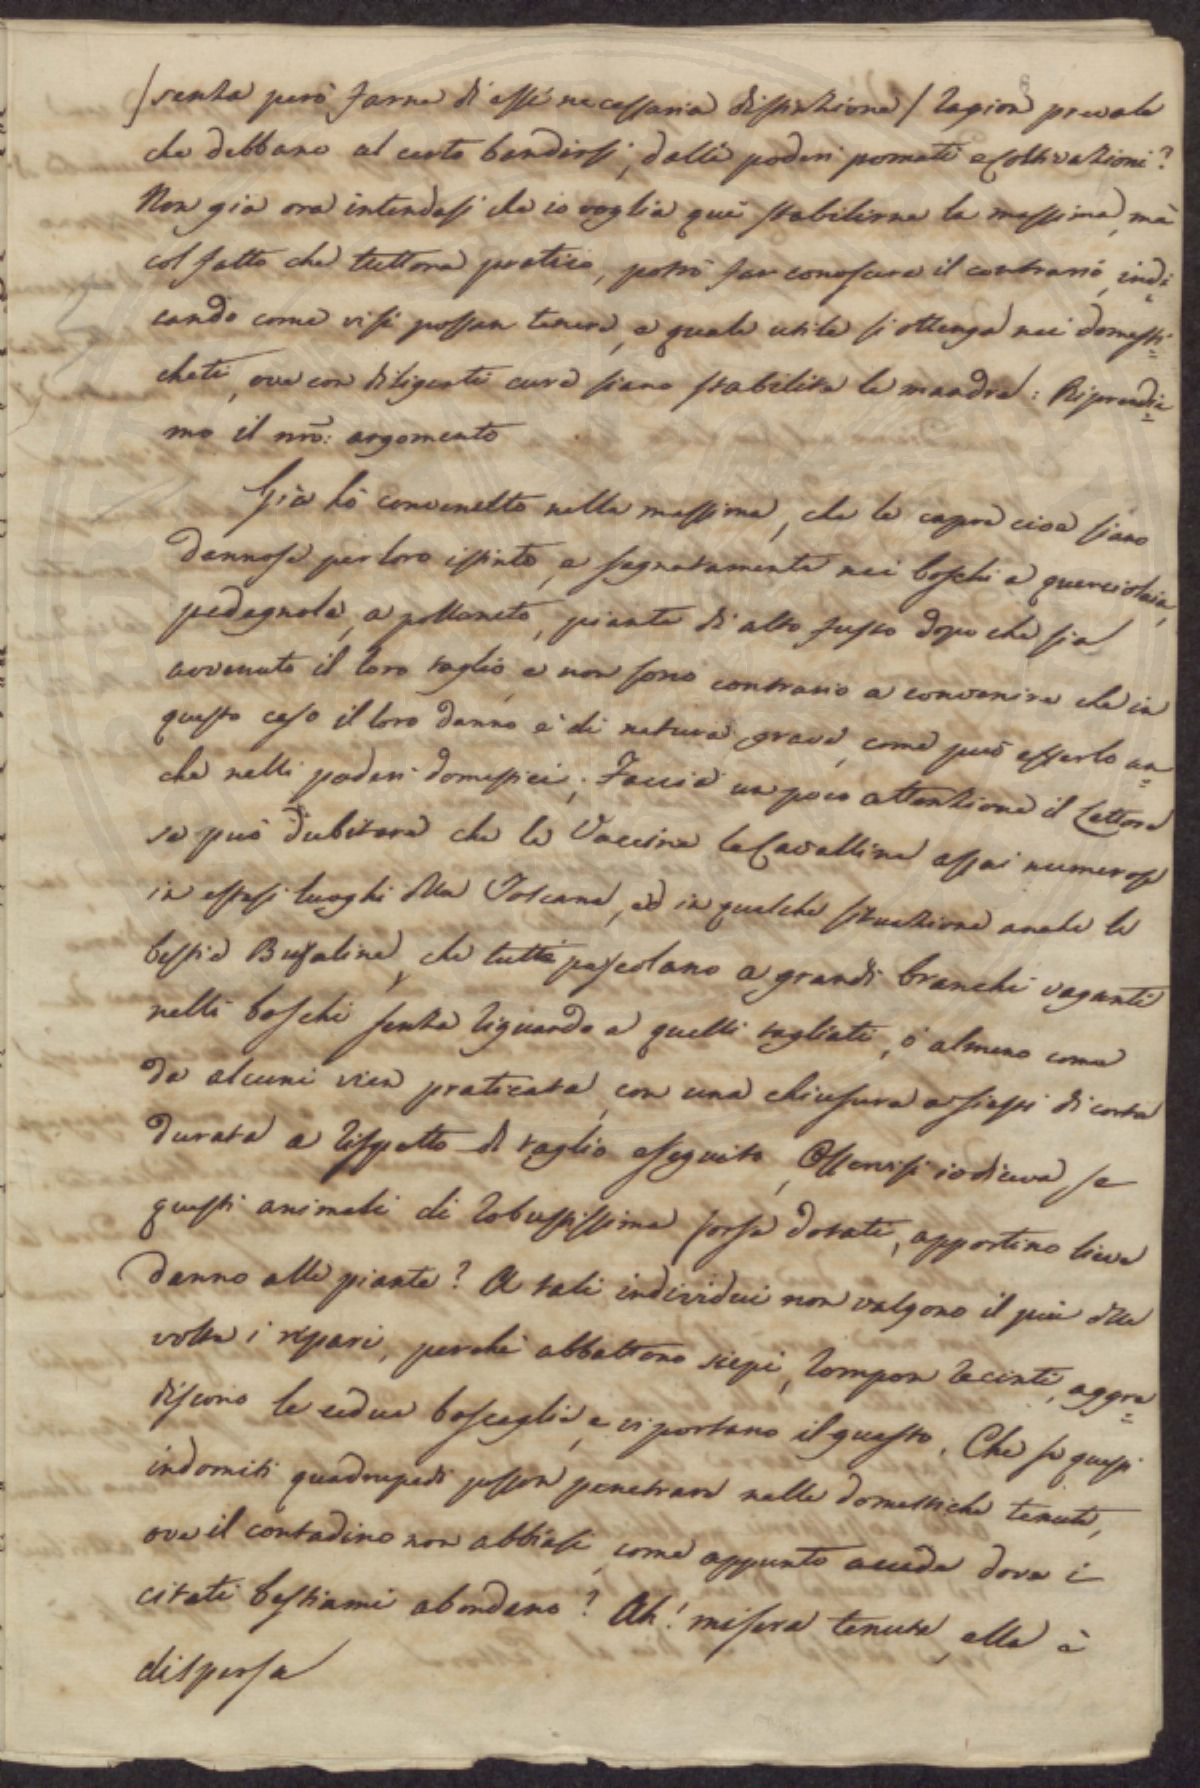 /senza però farne di esse necessaria distinzione/ ragion prevale
che debbano al certo bandirsi, dalli poderi pomati e coltivazioni?
Non già ora intendasi che io voglia quì stabilirne la massima, mà
col fatto che tuttora pratico, potrò far conoscere il contrario, indi=
cando come visi possan tenere, e quale utile si ottenga nei domesti=
cheti, ove con diligente cura siano stabilite le mandre: Riprendia=
mo il nrō: argomento
Già hò convenetto nella massima, che le capre cioè siano
dannose per loro istinto, e segnatamente nei boschi a querciolaia,
pedagnole, a polloneto, piante di alto fusto dopo che sia
avvenuto il loro taglio, e non sono contrario a convenire che in
questo caso il loro danno è di natura grave, come può esserlo an=
che nelli poderi domestici; Faccia un poco attenzione il Lettore
se può dubitare che le Vaccine le Cavalline assai numerose
in estesi luoghi della Toscana, ed in qualche situazione anche le
bestie Bufaline, che tutte pascolano a grandi branchi vaganti
nelli boschi senza riguardo a quelli tagliati, ò almeno come
da alcuni vien praticata, con una chiusura a siepi di corta
durata a rispetto di taglio eseguito, Osservisi io diceva se
questi animali di robustissima forza dotati, apportino lieve
danno alle piante? A tali individui non valgono il più delle
volte i ripari, perchè abbattono siepi, rompon recinti, aggre=
discono le cedue boscaglie, e vi portano il guasto. Che se questi
indomiti quadrupedi posson penetrare nelle domestiche tenute,
ove il contadino non abbiasi, come appunto accede dove i
citati bestiami abondano? Ah! misera tenuta, ella è
dispersa